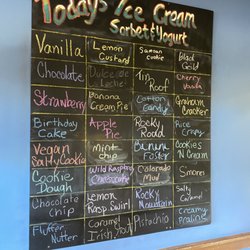 Todays Ice Cream
Sorbet & Yogurt
Vanilla
Lemon Custard
Samoan Cookie
Black Gold
Chocolate
Dulce de Leche
Tin Roof
Cherry Vanilla
Strawberry
Banana Cream Pie
Cotton Candy
Graham Cracker
Birthday Cake
Apple Pie
Rocky Road
Rice Crispy
Vegan Salty Cookie
Mint chip
Banana Foster
Cookies N Cream
Cookie Dough
Wild Raspberry
Colorado Mud
Smores
Chocolate Chip
Lemon Rasp. Swirl
Rocky Mountain
Salty Caramel
Fluffer Nutter
Caramel Irish
Pistachio
Creamy Pralines